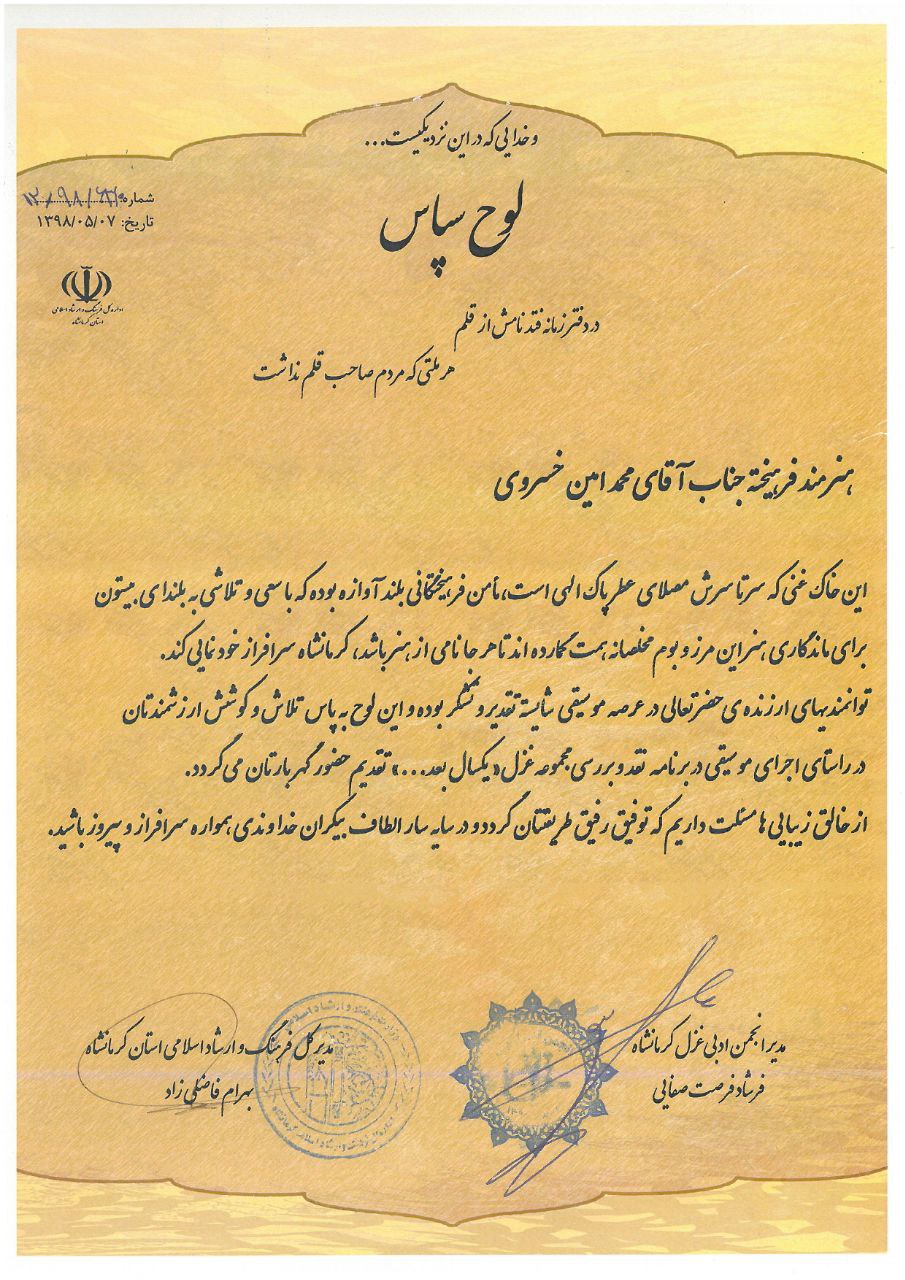 و خدایی که در این نزدیکیست...
شماره:
تاریخ: ۱۳۹۸/۰۵/۰۷
لوح سپاس
اداره کل فرهنگ و ارشاد اسلامی
استان کرمانشاه
در دفتر زمانه فتد نامش از قلم
هر ملتی که مردم صاحب قلم نداشت
هنرمند فرهیخته جناب آقای محمد امین خسروی
این خاک غنی که سرتاسرش مصلای عطر پاک الهی است، مأمن فرهیختگانی بلند آوازه بوده که با سعی و تلاشی به بلندای بیستون
برای ماندگاری هنر این مرز و بوم مخلصانه همت گمارده اند تا هر جا نامی از هنر باشد، کرمانشاه سرافراز خودنمایی کند.
توانمندیهای ارزنده ی حضرتعالی در عرصه موسیقی شایسته تقدیر و تشکر بوده و این لوح به پاس تلاش و کوشش ارزشمندتان
در راستای اجرای موسیقی در برنامه نقد و بررسی مجموعه غزل «یکسال بعد...» تقدیم حضور گهربارتان می گردد.
از خالق زیبایی ها مسئلت داریم که توفیق رفیق طریقتان گردد و در سایه سار الطاف بیکران خداوندی همواره سرافراز و پیروز باشید.
مدیر انجمن ادبی غزل کرمانشاه
فرشاد فرصت صفایی
مدیر کل فرهنگ و ارشاد اسلامی استان کرمانشاه
بهرام فاضلی زاد